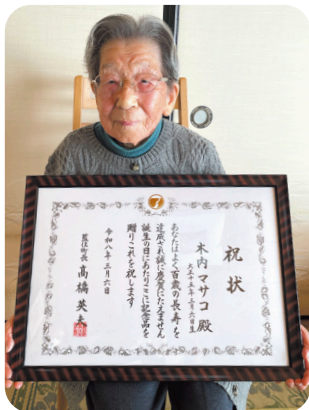 祝状
木内マサコ殿
大正十五年三月六日生
あなたはよく百歳の長寿を
達成され誠に慶賀にたえません
誕生の日にあたりここに記念品を
贈りこれを祝します
令和八年三月六日
町長 高橋英夫